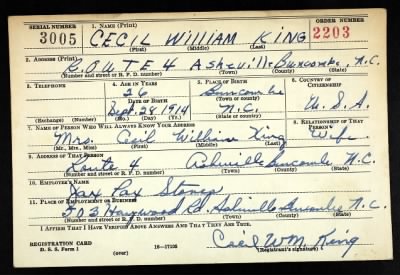 SERIAL NUMBER 1. NAME (Print) ORDER NUMBER
3005 CECIL WILLIAM KING 2203
(First) (Middle) (Last)
2. ADDRESS (Print)
ROUTE 4 Asheville Buncombe, N.C.
(Number and street or R. F. D. number) (Town) (County) (State)
3. TELEPHONE 4. AGE IN YEARS 5. PLACE OF BIRTH 6. COUNTRY OF CITIZENSHIP
26 Buncombe
DATE OF BIRTH (Town or county)
Sept. 28, 1914 N.C. U.S.A.
(Exchange) (Number) (Mo.) (Day) (Yr.) (State or country)
7. NAME OF PERSON WHO WILL ALWAYS KNOW YOUR ADDRESS 8. RELATIONSHIP OF THAT PERSON
Mrs. Cecil William King Wife
(Mr., Mrs., Miss) (First) (Middle) (Last)
9. ADDRESS OF THAT PERSON
Route 4 Asheville Buncombe N.C.
(Number and street or R. F. D. number) (Town) (County) (State)
10. EMPLOYER'S NAME
Jax Pax Stores
11. PLACE OF EMPLOYMENT OR BUSINESS
Haywood Rd. Asheville Buncombe N.C.
(Number and street or R. F. D. number) (Town) (County) (State)
I AFFIRM THAT I HAVE VERIFIED ABOVE ANSWERS AND THAT THEY ARE TRUE.
Cecil Wm King
REGISTRATION CARD
D. S. S. Form 1 16—17105 (Registrant's signature)
(over)